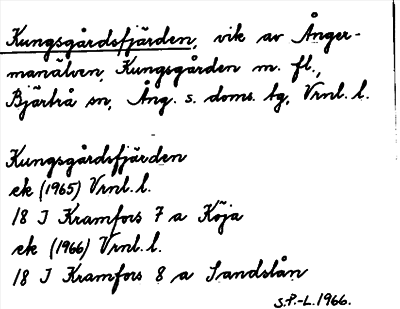 Kungsgårdsfjärden, vik av Ånger-
manälven, Kungsgården m. fl.,
Bjärtrå sn, Ång. s. doms. tg, Vrnl. l.
Kungsgårdsfjärden
ek (1965) Vrnl. l.
18 I Kramfors 7 a Köja
ek (1966) Vrnl. l.
18 I Kramfors 8 a Sandslån
S.P.-L. 1966.